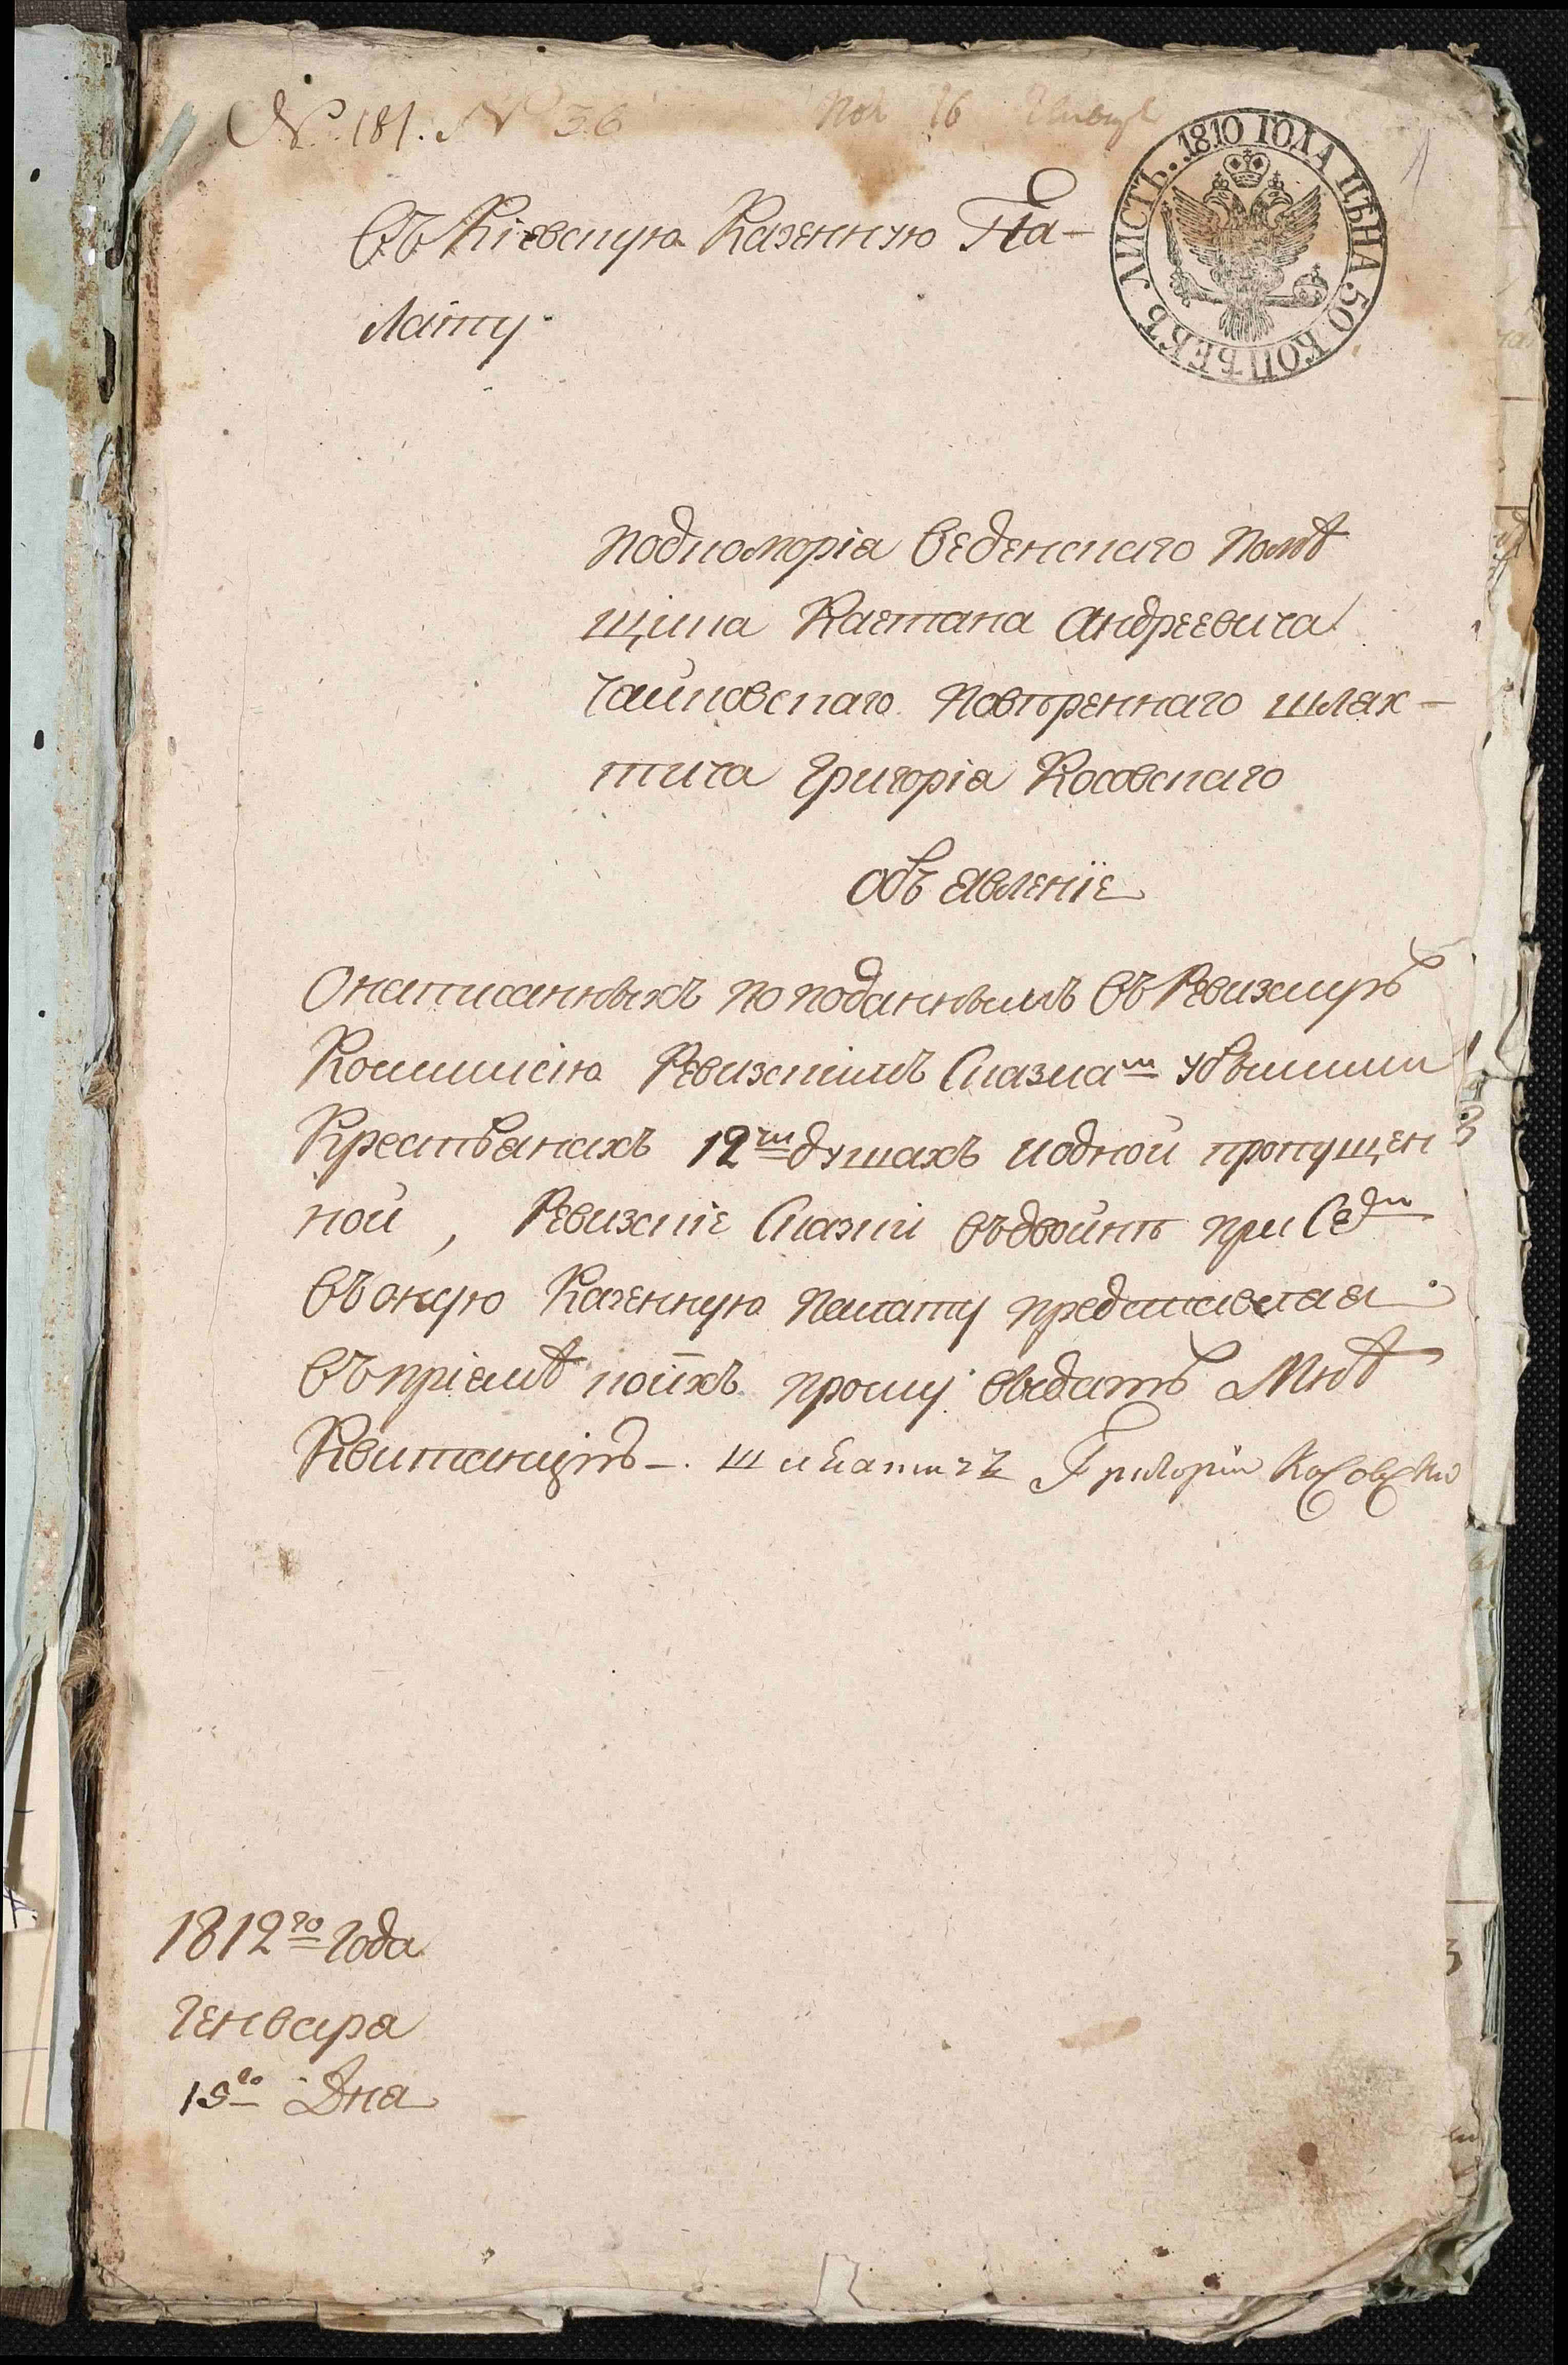 № 181. № 36
1
ЛИСТЪ. 1810 ГОДА ЦѢНА 50 КОПѢЕКЪ
Въ Кіевскую Казенную Па-
лату
подкоморія веденскаго помѣ
щика Каетана Андреевича
Чайковскаго повѣреннаго шлях-
тича Григорія Косовскаго
Объявленіе
О написанныхъ по поданнымъ въ Ревизскую
Коммисію Ревизскимъ Сказкам
Крестьянахъ 12ти душахъ и одной пропущен
ной, Ревизскіе Сказки въдвойнѣ при Сем
въ оную Казенную палату представляя
въ пріемѣ коихъ прошу выдать мнѣ
Квитанцію. шляхтичъ Григорій Косовски
1812го Года
Генваря
15го Дня